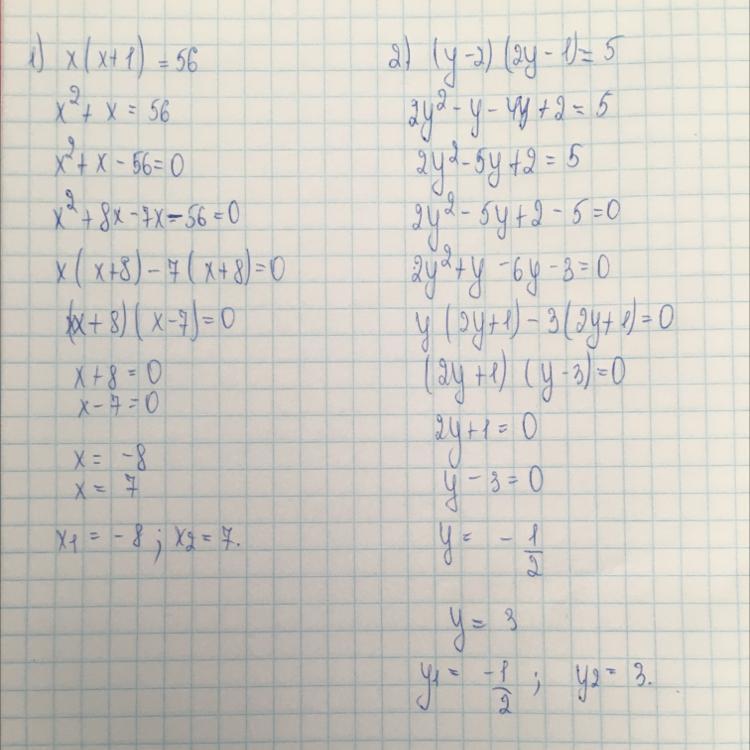 1) x(x+1) = 56
x² + x = 56
x² + x - 56 = 0
x² + 8x - 7x - 56 = 0
x(x+8) - 7(x+8) = 0
(x+8)(x-7) = 0
x+8 = 0
x-7 = 0
x = -8
x = 7
x₁ = -8; x₂ = 7.
2) (y-2)(2y-1) = 5
2y² - y - 4y + 2 = 5
2y² - 5y + 2 = 5
2y² - 5y + 2 - 5 = 0
2y² + y - 6y - 3 = 0
y(2y+1) - 3(2y+1) = 0
(2y+1)(y-3) = 0
2y+1 = 0
y - 3 = 0
y = -1/2
y = 3
y₁ = -1/2; y₂ = 3.